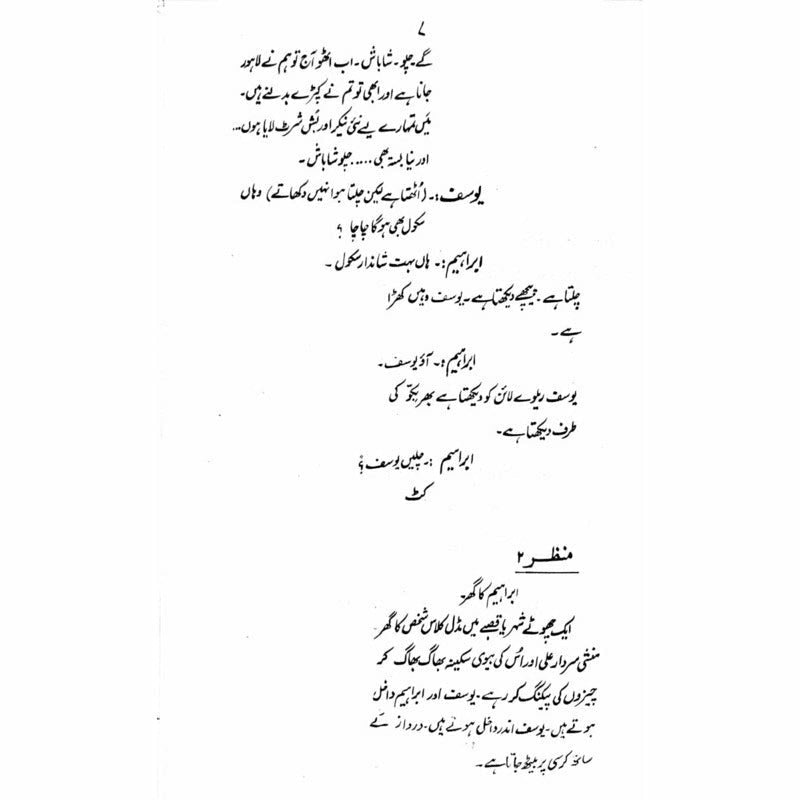 ۷
گے چلو۔ شاباش۔ اب اٹھو آج تو ہم نے لاہور
جانا ہے اور ابھی تو تم نے کپڑے بدلنے ہیں۔
میں تمہارے لیے نئی نیکر اور بش شرٹ لایا ہوں...
اور نیا بستہ بھی ..... چلو شاباش۔
یوسف:۔ (اُٹھتا ہے لیکن چلتا ہوا نہیں دکھاتے) وہاں
سکول بھی ہوگا چاچا ؟
ابراہیم:۔ ہاں بہت شاندار سکول۔
چلتا ہے۔ پیچھے دیکھتا ہے۔ یوسف وہیں کھڑا
ہے۔
ابراہیم:۔ آؤ یوسف۔
یوسف ریلوے لائن کو دیکھتا ہے پھر بگو کی
طرف دیکھتا ہے۔
ابراہیم :۔ چلیں یوسف ؟
کٹ
منظر ۲
ابراہیم کا گھر۔
ایک چھوٹے شہر یا قصبے میں مڈل کلاس شخص کا گھر
منشی سردار علی اور اُس کی بیوی سکینہ بھاگ بھاگ کر
چیزوں کی پیکنگ کر رہے۔ یوسف اور ابراہیم داخل
ہوتے ہیں۔ یوسف اندر داخل ہوتے ہیں۔ درداز کے
ساتھ کرسی پر بیٹھ جاتا ہے۔